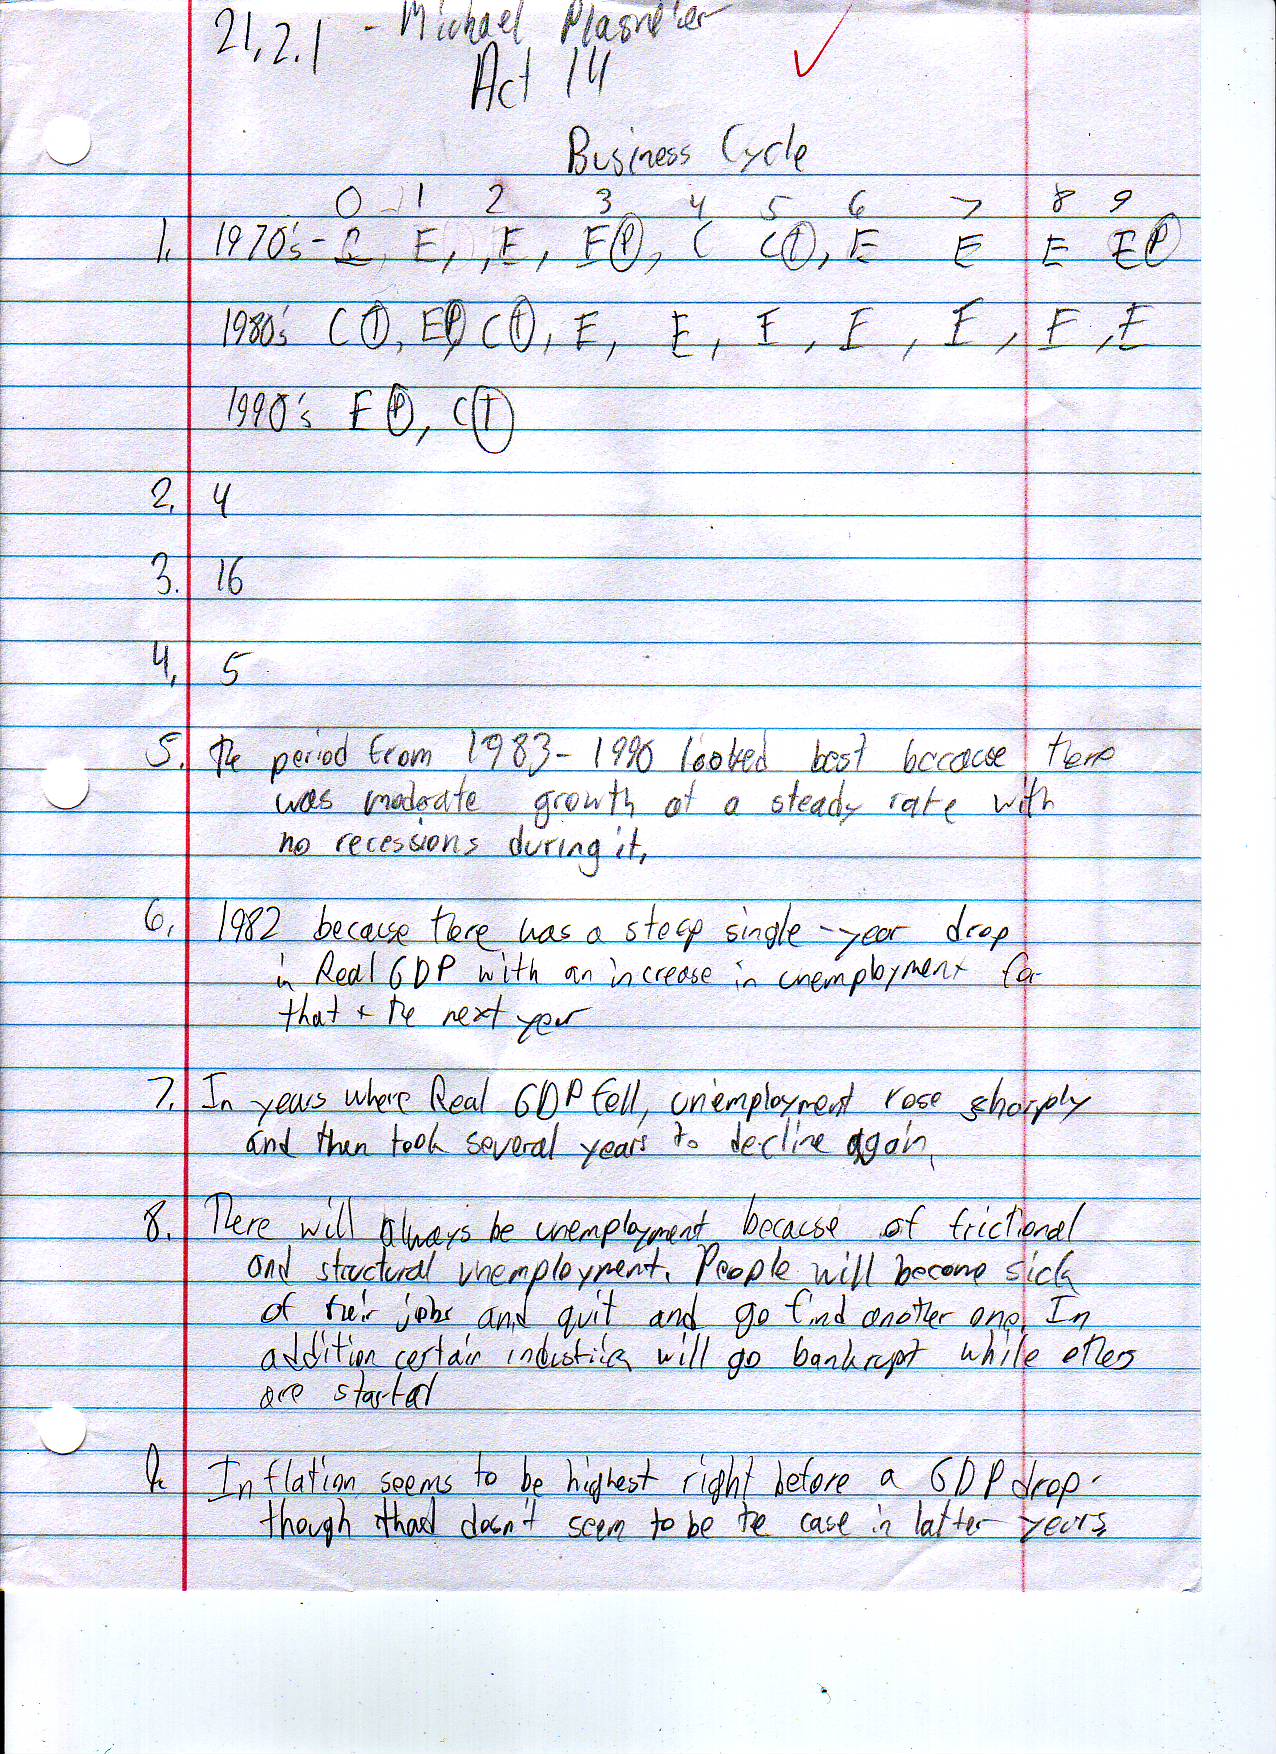 21.2.1 - Michael Plasmeier
Act 14
Business Cycle
0 1 2 3 4 5 6 7 8 9
1. 1970's - C, E, , E, E(P), C C(T), E E E E(P)
1980's C(T), E(P), C(T), E, E, E, E, E, E, E
1990's E(P), C(T)
2. 4
3. 16
4. 5
5. The period from 1983-1990 looked best because there
was moderate growth at a steady rate with
no recessions during it.
6. 1982 because there was a steep single-year drop
in Real GDP with an increase in unemployment for
that + the next year
7. In years where Real GDP fell, unemployment rose sharply
and then took several years to decline again.
8. There will always be unemployment because of frictional
and structural unemployment. People will become sick
of their jobs and quit and go find another one. In
addition certain industries will go bankrupt while others
are started
9. Inflation seems to be highest right before a GDP drop.
though that doesn't seem to be the case in latter years.